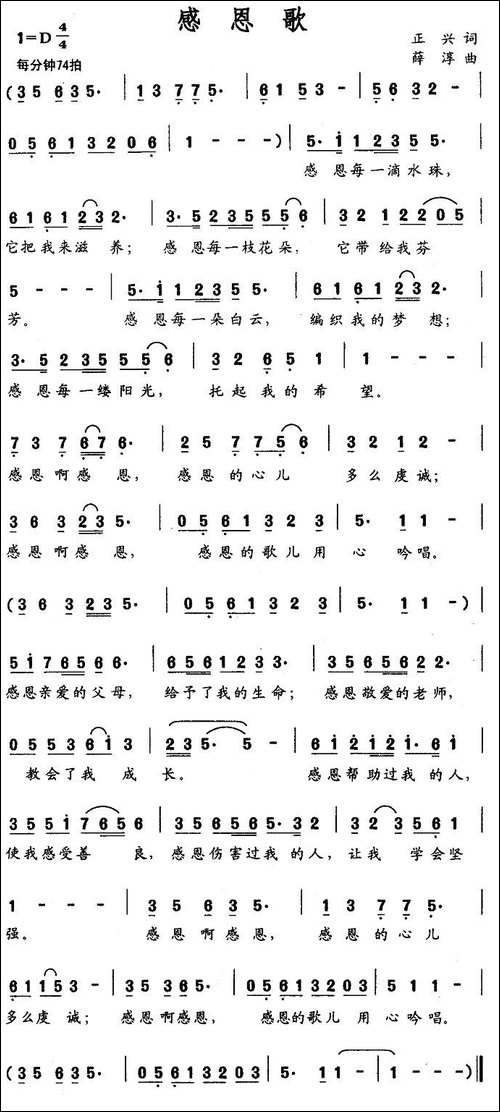 感恩歌
1=D 4/4
正兴词
每分钟74拍
薛淳曲
(35 635· | 13 775· | 6153- | 5632-
05613206 | 1---) | 5·i 12355
感恩每一滴水珠,
6161232· | 3·5235556 | 32 12205
它把我来滋养; 感恩每一枝花朵, 它带给我芬
5--- | 5·i 12355· | 6161232·
芳。 感恩每一朵白云, 编织我的梦想;
3·5235556 | 32651 | 1---
感恩每一缕阳光, 托起我的希望。
737676· | 257756 | 3212-
感恩啊感恩, 感恩的心儿 多么虔诚;
363235· | 0561323 | 5·11-
感恩啊感恩, 感恩的歌儿用心吟唱。
(363235· | 0561323 | 5·11-)
5176566· | 6561233· | 3565622·
感恩亲爱的父母, 给予了我的生命; 感恩敬爱的老师,
0553613 | 235·5- | 6i2i2i·6i
教会了我成长。 感恩帮助过我的人,
355i7656 | 356565·32 | 323561
使我感受善良, 感恩伤害过我的人, 让我学会坚
1--- | 35635· | 13775·
强。 感恩啊感恩, 感恩的心儿
61153- | 35635· | 05613203 | 511-
多么虔诚; 感恩啊感恩, 感恩的歌儿用心吟唱。
(35 635· | 05613203 | 5·11- | 1--)